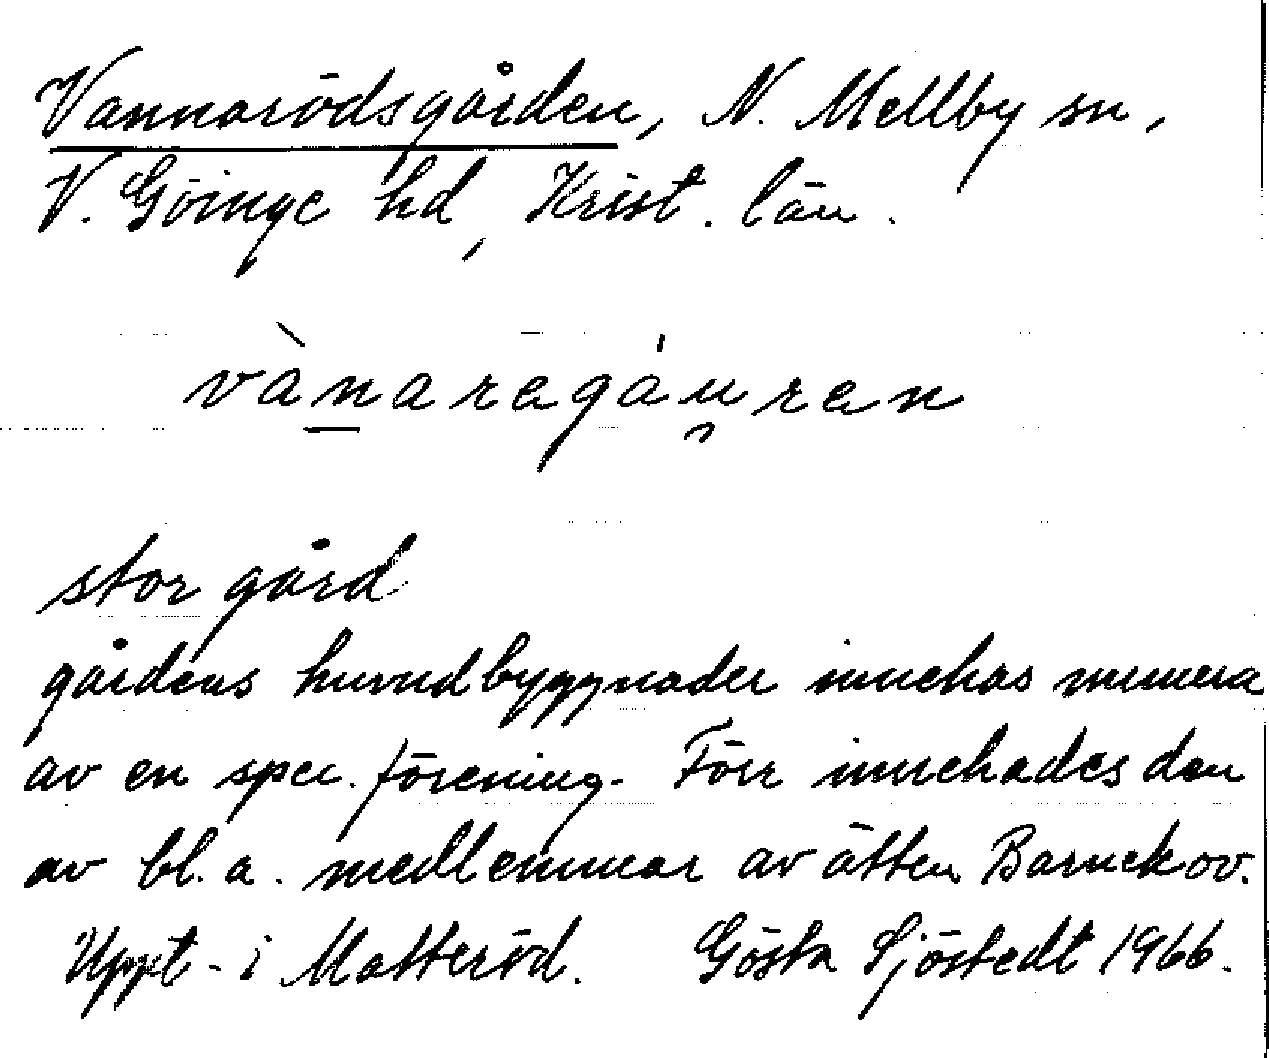 Vannarödsgården, N. Mellby sn,
V. Göinge hd, Krist. län.
vànaregáu̯ren
stor gård
gårdens huvudbyggnader innehas numera
av en spec. förening. Förr innehades den
av bl. a. medlemmar av ätten Barnekov.
Uppt. i Matteröd. Gösta Sjöstedt 1966.